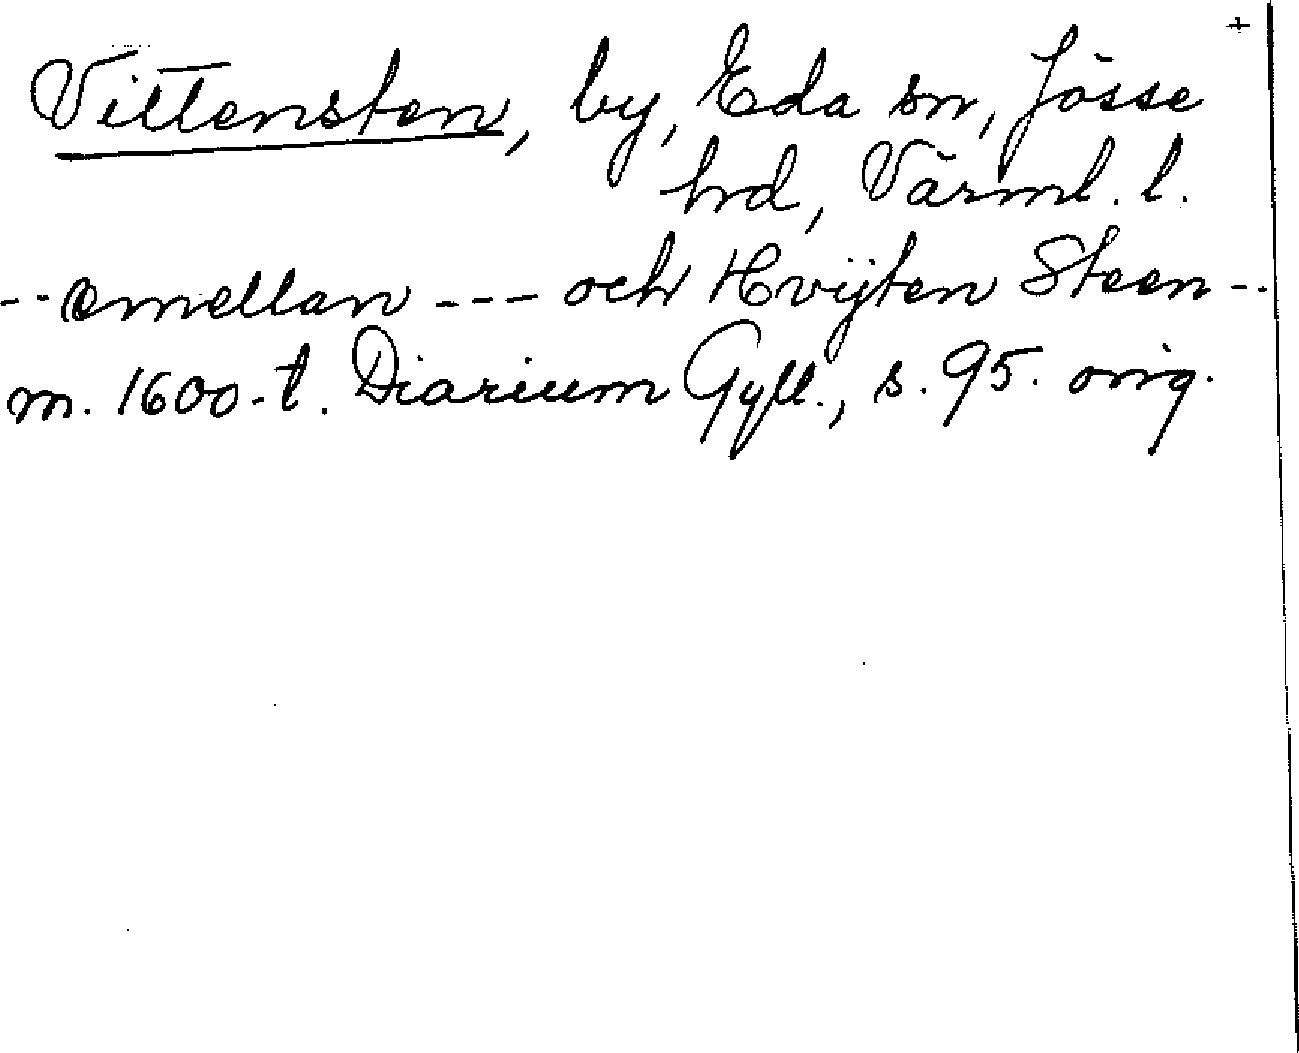 +
Vittensten, by, Eda sn, Jösse
hrd, Värml. l.
-- emellan --- och Hvijten Steen --
m. 1600-t. Diarium Gyll., s. 95. orig.